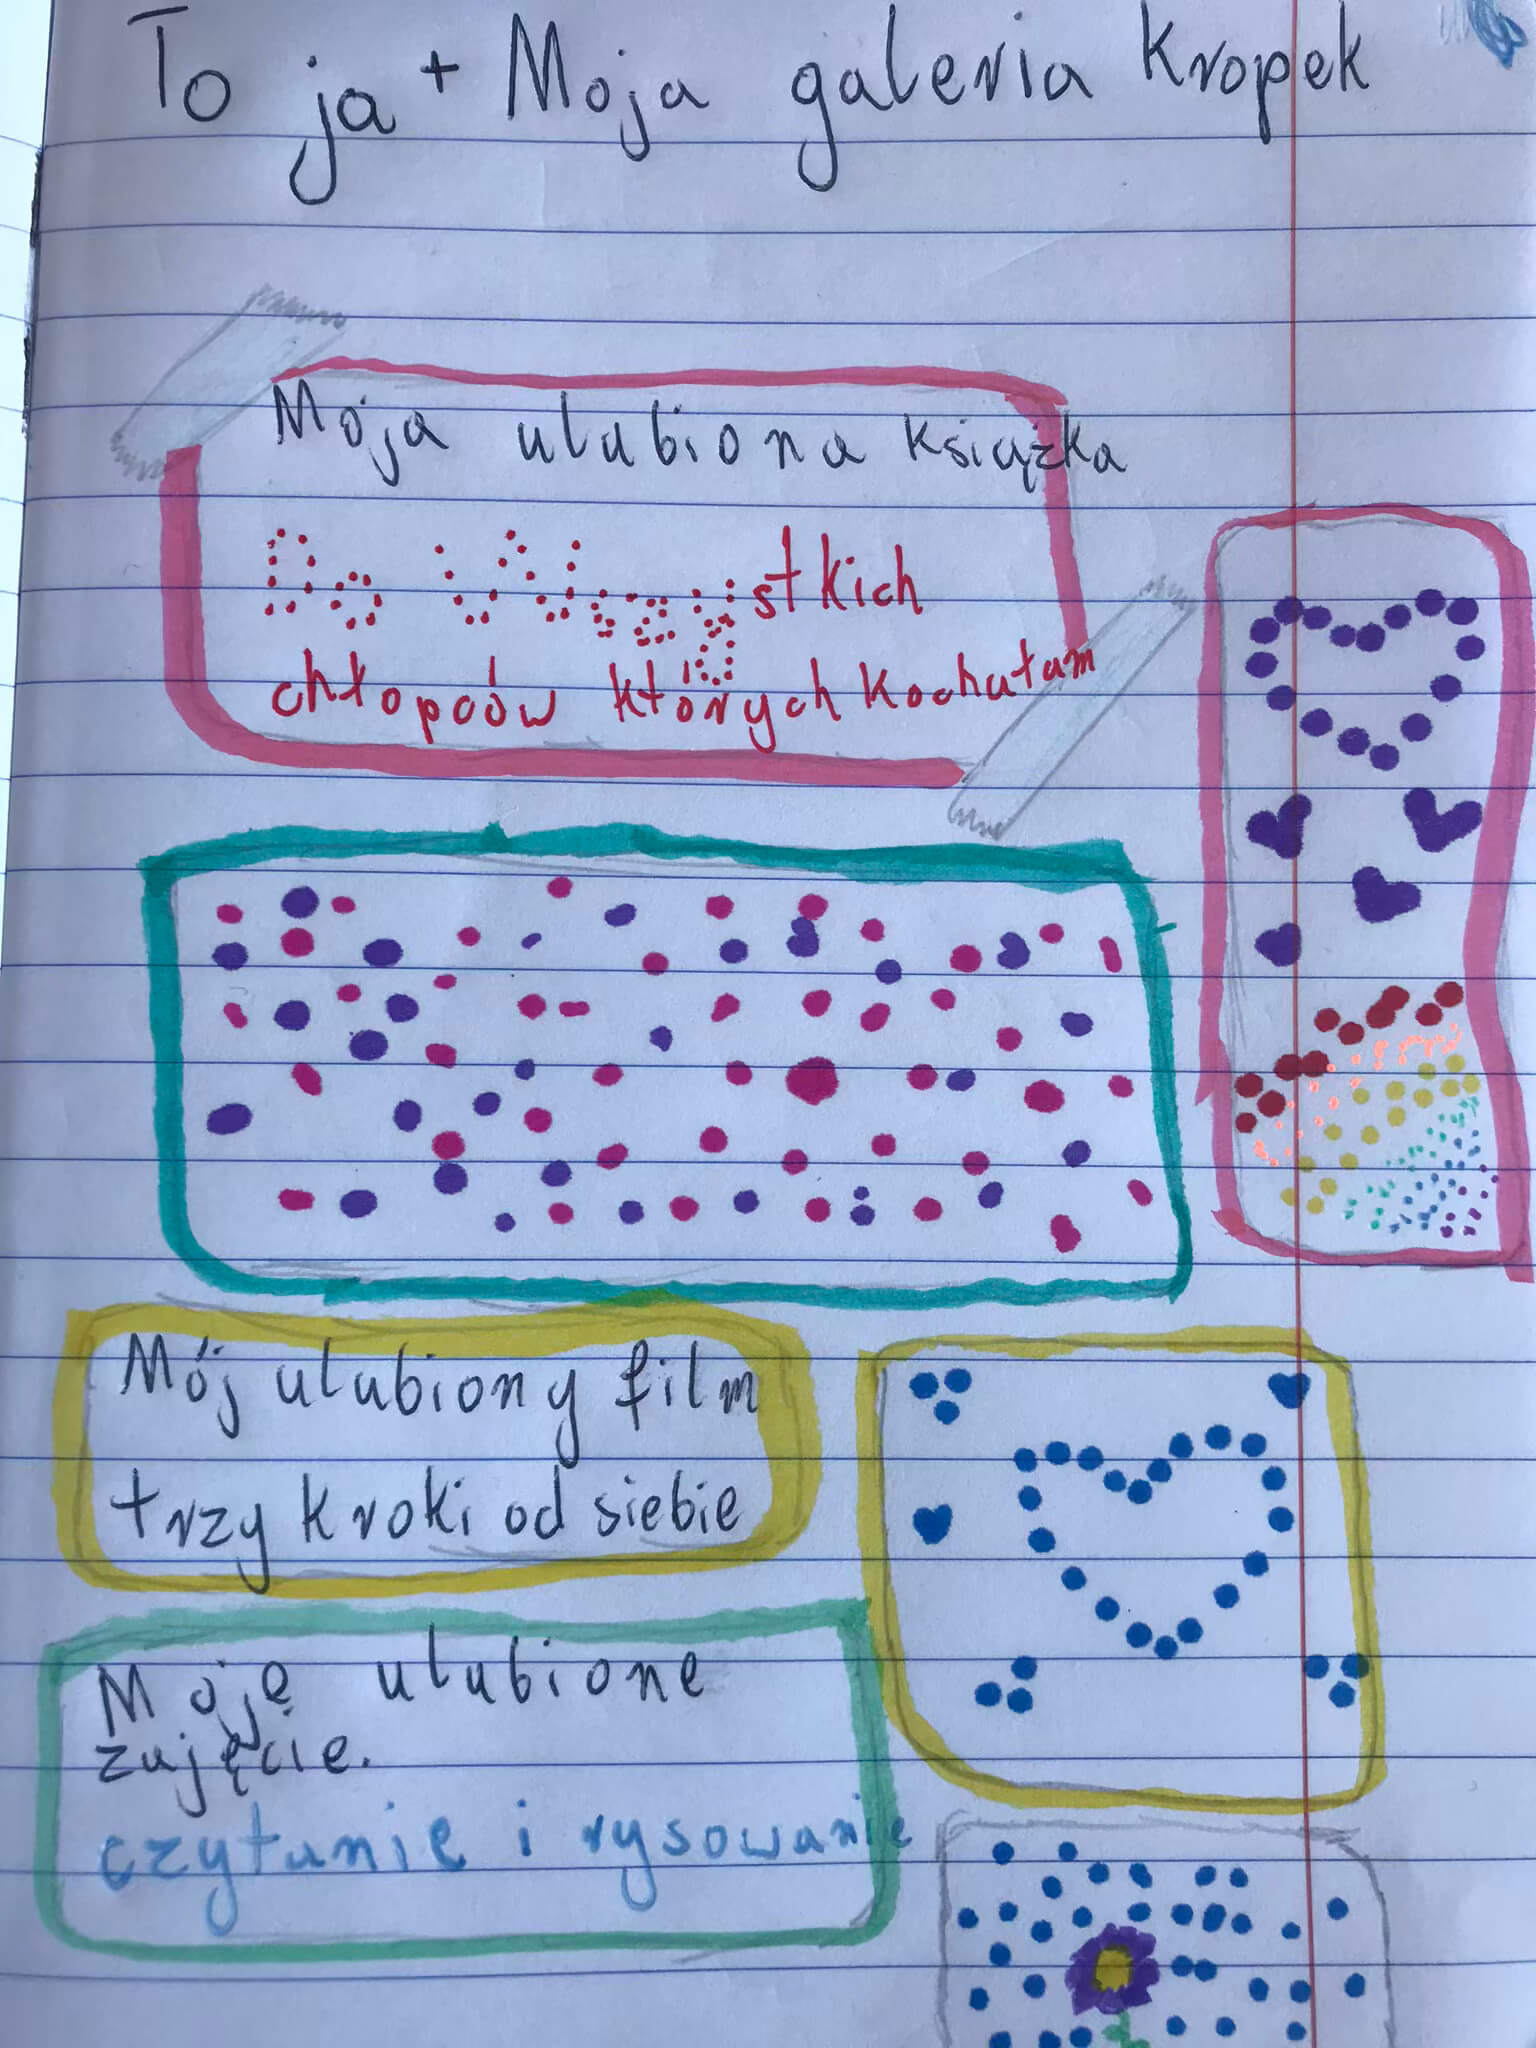 To ja + Moja galeria kropek
Moja ulubiona książka
Do wszystkich
chłopców których kochałam
Mój ulubiony film
trzy kroki od siebie
Moję ulubione
zajęcie.
czytanie i rysowanie